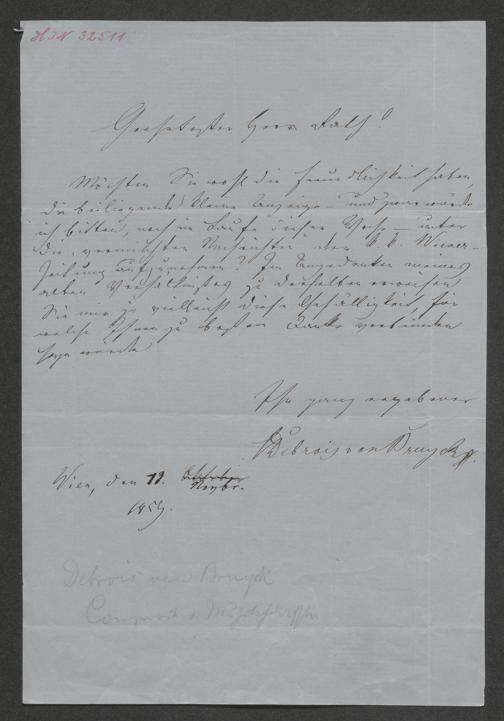 HIN 32511
Geehrtester Herr Rath!
Möchten Sie wohl die Freundlichkeit haben,
die beiliegende kleine Anzeige – und zwar würde
ich bitten, noch im Laufe dieser Woche – unter
die vermischten Nachrichten der k. k. Wiener-
Zeitung aufzunehmen? Im Angedenken meines
alten Verhältnisses zu derselben erweisen
Sie mir ja vielleicht diese Gefälligkeit, für
welche Ihnen zu bestem Danke verbunden
sein würde
Ihr ganz ergebener
Debrois van Bruyck
Wien, den 19. Oktober
Novbr.
1859.
Debrois van Bruyck